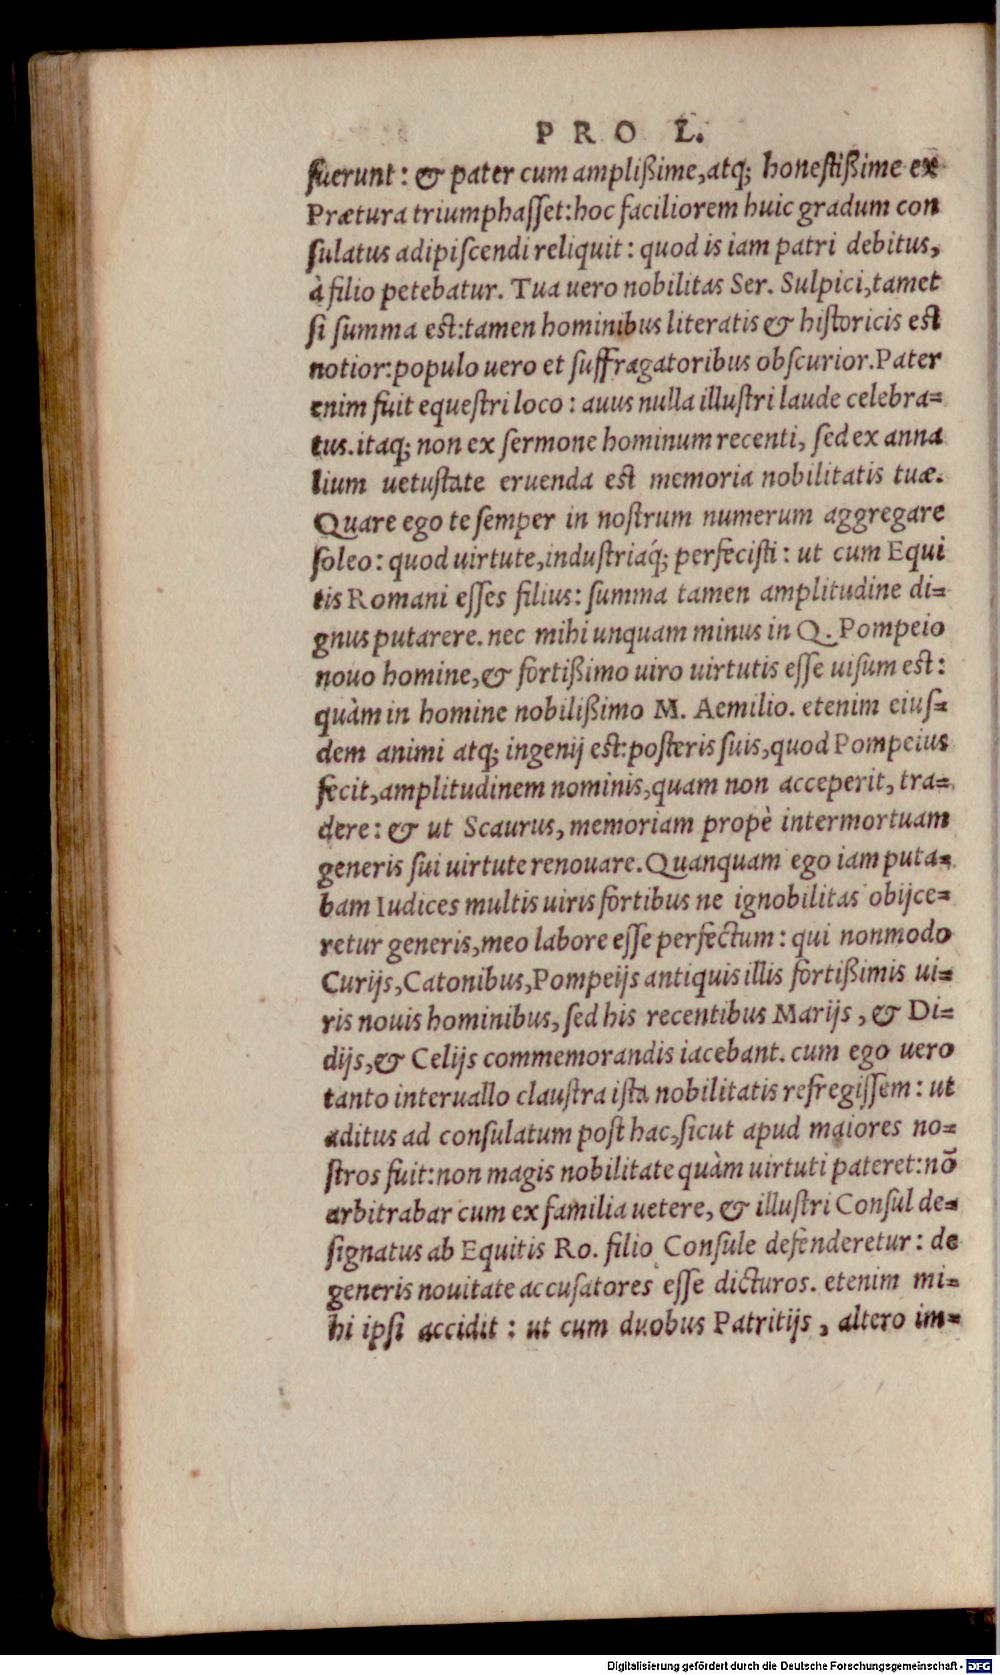 PRO L.
fuerunt: & pater cum amplißime, atq; honestißime ex
Prætura triumphasset: hoc faciliorem huic gradum con
sulatus adipiscendi reliquit: quod is iam patri debitus,
à filio petebatur. Tua uero nobilitas Ser. Sulpici, tamet
si summa est: tamen hominibus literatis & historicis est
notior: populo uero et suffragatoribus obscurior. Pater
enim fuit equestri loco: auus nulla illustri laude celebra=
tus. itaq; non ex sermone hominum recenti, sed ex anna
lium uetustate eruenda est memoria nobilitatis tuæ.
Quare ego te semper in nostrum numerum aggregare
soleo: quod uirtute, industriaq́; perfecisti: ut cum Equi
tis Romani esses filius: summa tamen amplitudine di=
gnus putarere. nec mihi unquam minus in Q. Pompeio
nouo homine, & fortißimo uiro uirtutis esse uisum est:
quàm in homine nobilißimo M. Aemilio. etenim eius=
dem animi atq; ingenij est: posteris suis, quod Pompeius
fecit, amplitudinem nominis, quam non acceperit, tra=
dere: & ut Scaurus, memoriam propè intermortuam
generis sui uirtute renouare. Quanquam ego iam puta=
bam Iudices multis uiris fortibus ne ignobilitas obijce=
retur generis, meo labore esse perfectum: qui nonmodo
Curijs, Catonibus, Pompeijs antiquis illis fortißimis ui=
ris nouis hominibus, sed his recentibus Marijs, & Di=
dijs, & Celijs commemorandis iacebant. cum ego uero
tanto interuallo claustra ista nobilitatis refregissem: ut
aditus ad consulatum post hac, sicut apud maiores no=
stros fuit: non magis nobilitate quàm uirtuti pateret: nō
arbitrabar cum ex familia uetere, & illustri Consul de=
signatus ab Equitis Ro. filio Consule defenderetur: de
generis nouitate accusatores esse dicturos. etenim mi=
hi ipsi accidit: ut cum duobus Patritijs, altero im=
Digitalisierung gefördert durch die Deutsche Forschungsgemeinschaft - DFG